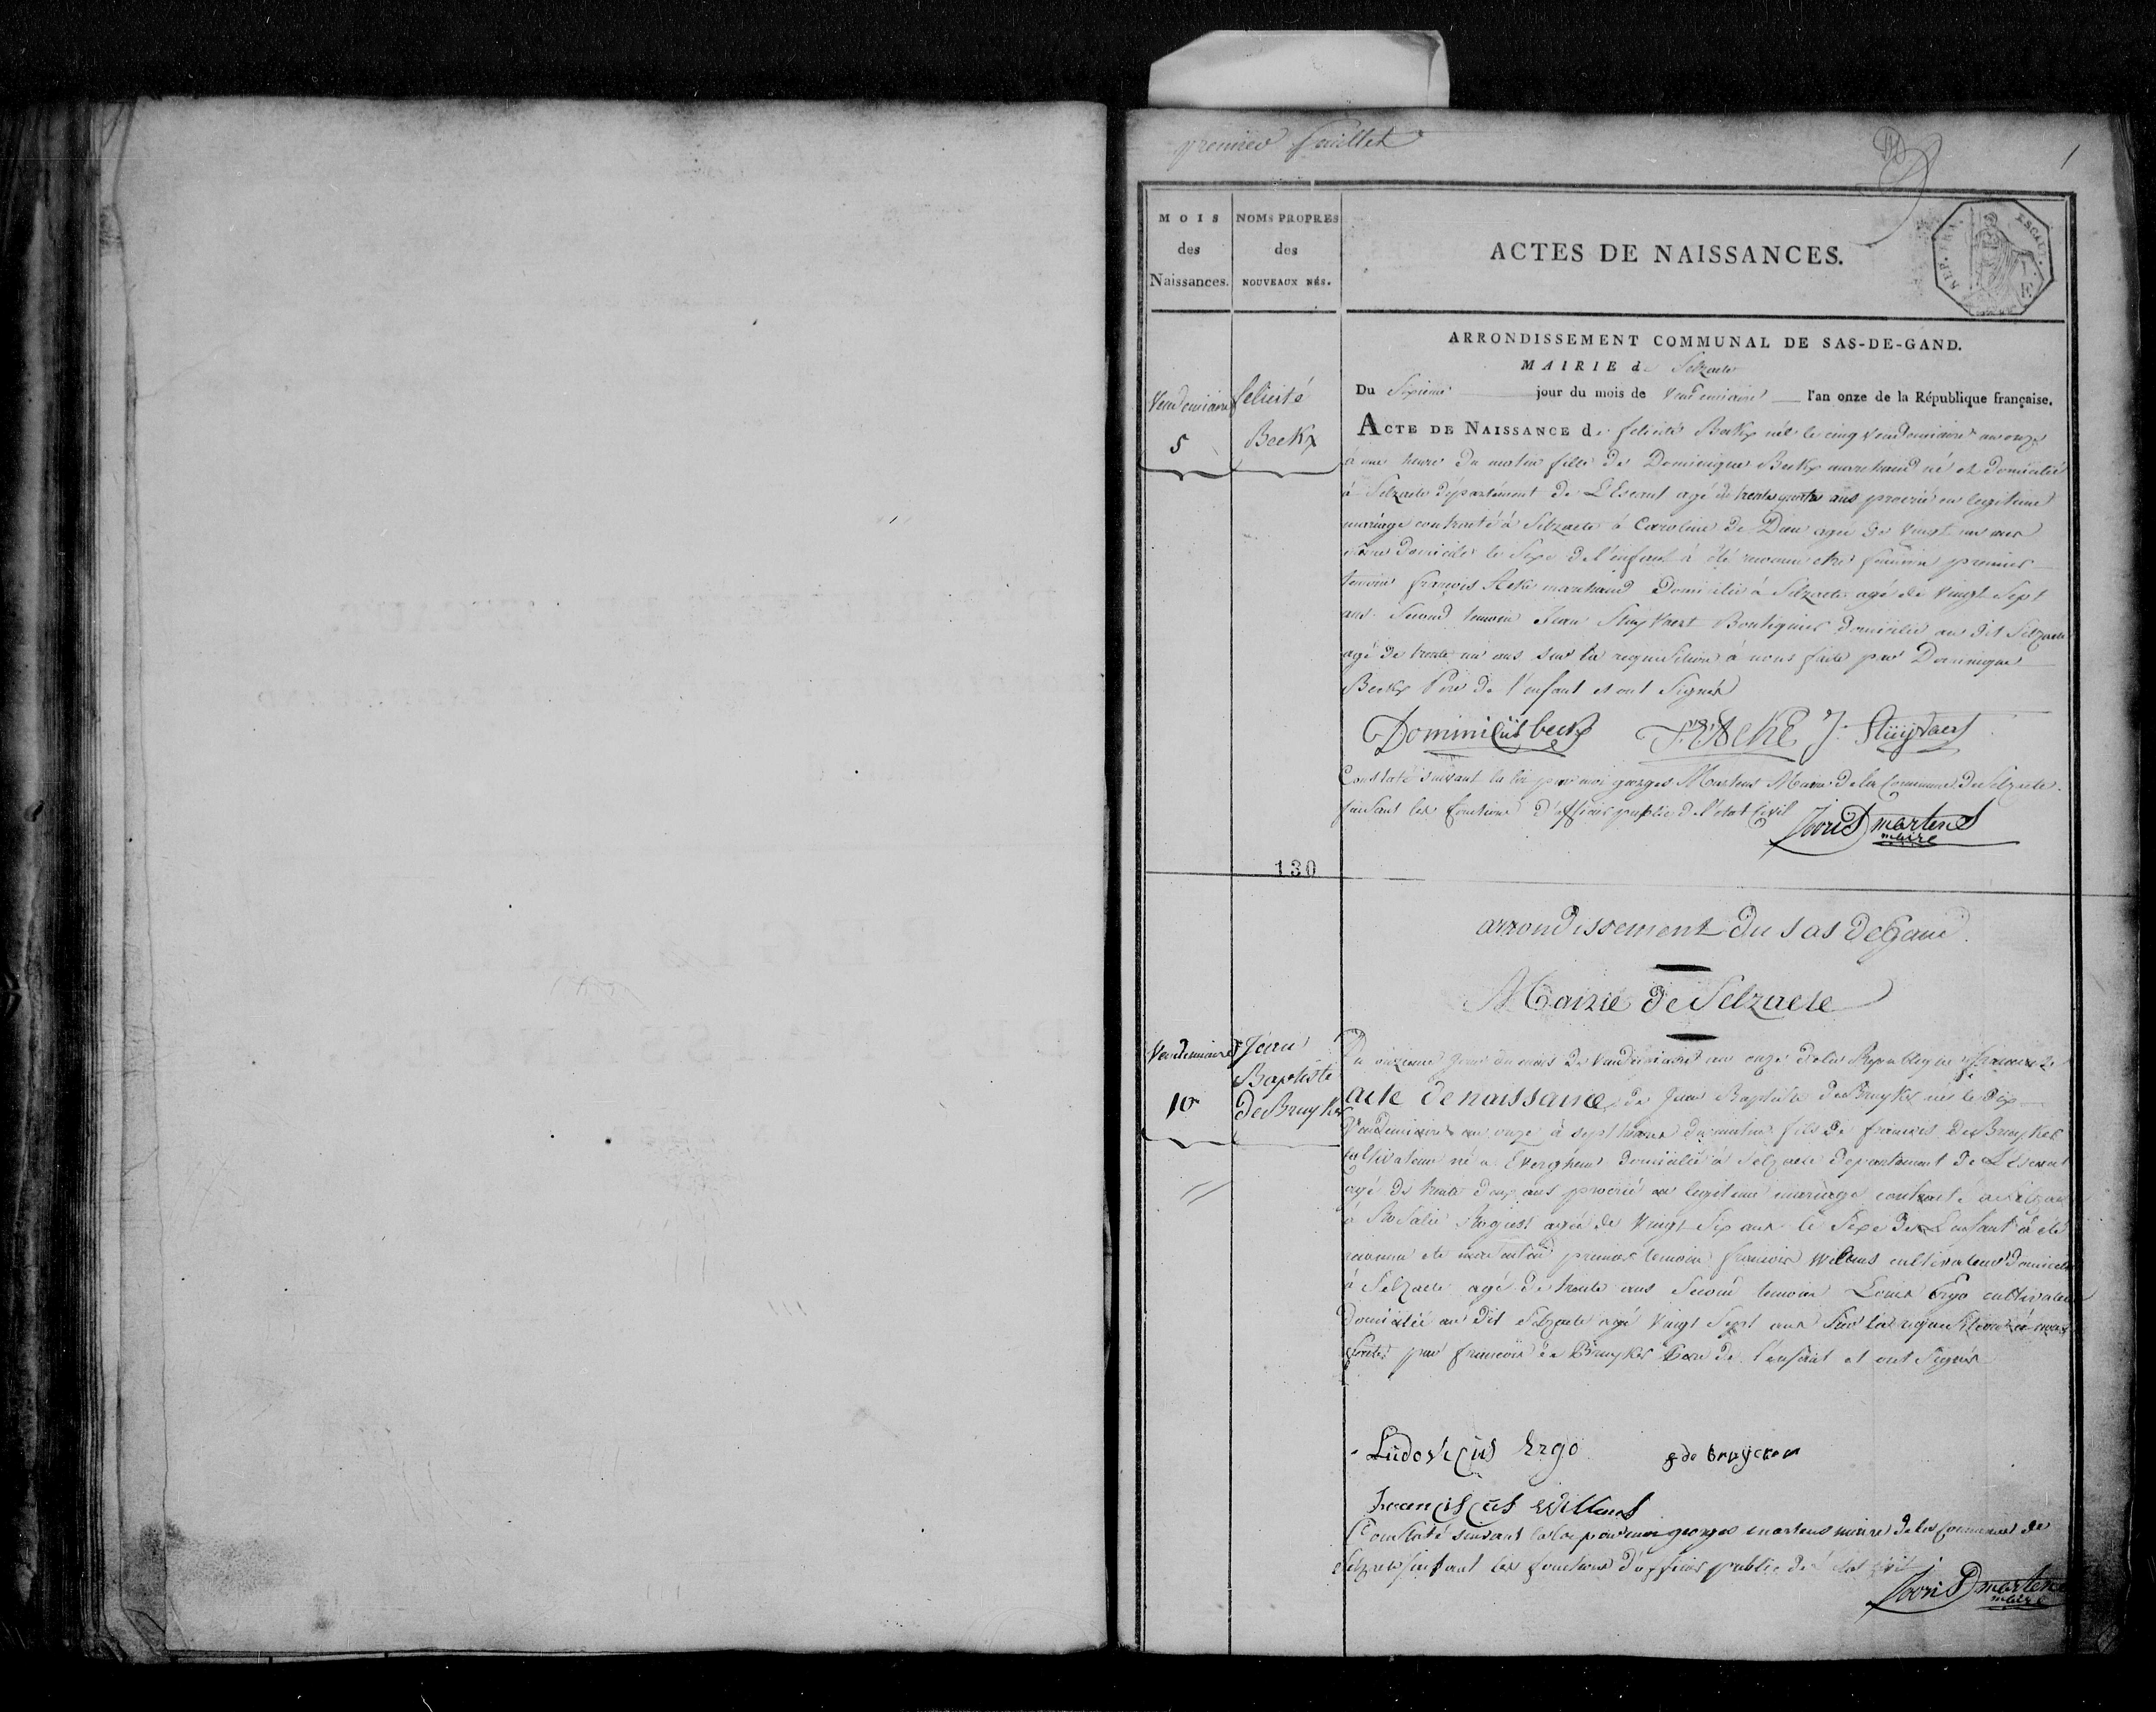 premier feuillet
1
MOIS
des
Naissances.
NOMS PROPRES
des
NOUVEAUX NÉS.
ACTES DE NAISSANCES.
REP. FRA.
ESCAUT.
ARRONDISSEMENT COMMUNAL DE SAS-DE-GAND.
MAIRIE de Selzaete
Du Sixieme jour du mois de Vendemiaire l'an onze de la République française.
Vendemiaire
5
felicité
Beckx
ACTE DE NAISSANCE de felicité Beckx née le cinq Vendemiaire an onze
à une heure du matin fille de Dominique Beckx marchand né et domicilié
à Selzaete département de L'Escaut agé de trente quatre ans procrée en legitime
mariage contracté à Selzaete à Caroline de Dieu agée de vingt un ans
même domicile le Sexe de l'enfant à été reconnu etre feminin premier
temoin françois Acke marchand Domicilié à Selzaete agé de vingt Sept
ans Second temoin Jean Stuyvaert Boutiquier domicilié au dit Selzaete
agé de trente un ans sur la requisition à nous faite par Dominique
Beckx Père de l'enfant et ont Signés
Dominicüs beckx F: Acke J: Stüyvaert
Constaté suivant la loi par moi georges Martens Maire de la Commune de Selzaete
faisant les fonctions d'officier public de l'etat Civil
Jooris martens
maire
130
arrondissement du Sas de Gand
Mairie de Selzaete
Vendemiaire
10
Jean
Baptiste
de Bruyker
Du onzieme jour du mois de Vendemiaire an onze de la Republique francaise
acte de naissance de Jean Baptiste de Bruyker né le dix
Vendemiaire an onze à sept heures du matin fils de francois de Bruyker
cultivateur né a Everghem domicilié à Selzaete departement de L'Escaut
agé de trente deux ans procrée en legitime mariage contracté a Selzaete
à Rosalie agée de vingt Six ans le Sexe de L'enfant à eté
reconnu etre masculin premier temoin francois Willems cultivateur domicilié
à Selzaete agé de trente ans Second temoin Louis Ergo cultivateur
domicilié au dit Selzaete agé vingt Sept ans Sur la requisition à nous
faite par francois de Bruyker Pere de l'enfant et ont Signés
Lüdovicüs Ergo f de bruycker
franciscüs Willems
Constaté suivant la loi par moi georges martens maire de la Commune de
Selzaete faisant les fonctions d'officier public de l'etat Civil
Jooris martens
maire